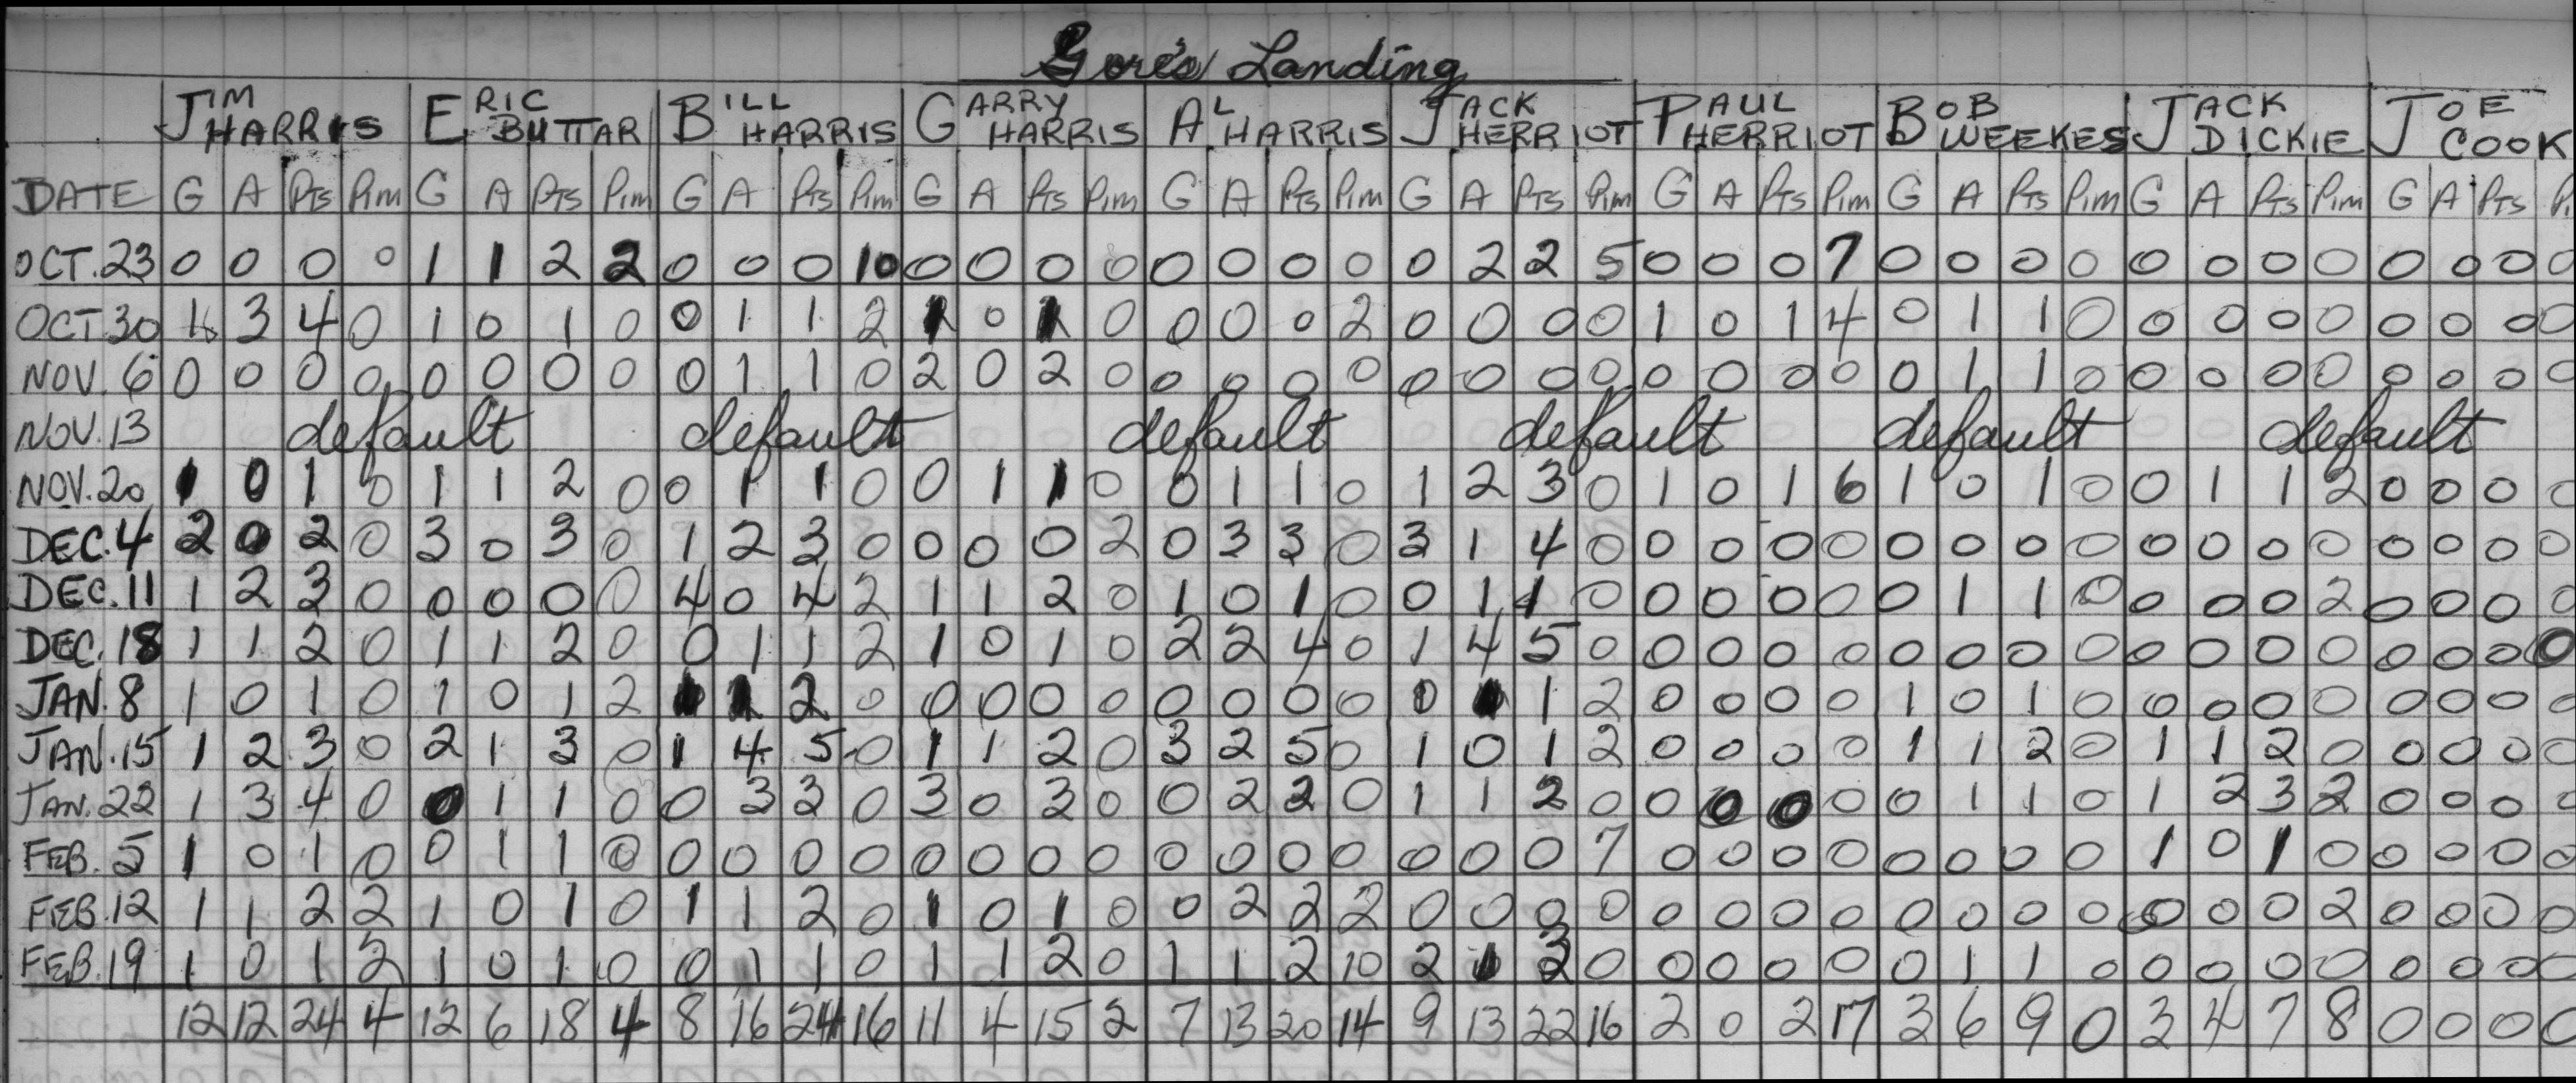 Gore's Landing
JIM HARRIS ERIC BUTTAR BILL HARRIS GARRY HARRIS AL HARRIS JACK HERRIOT PAUL HERRIOT BOB WEEKES JACK DICKIE JOE COOK
DATE G A Pts Pim G A Pts Pim G A Pts Pim G A Pts Pim G A Pts Pim G A Pts Pim G A Pts Pim G A Pts Pim G A Pts Pim G A Pts
OCT.23 0 0 0 0 1 1 2 2 0 0 0 10 0 0 0 0 0 0 0 0 0 2 2 5 0 0 0 7 0 0 0 0 0 0 0 0 0 0 0 0
OCT.30 1 3 4 0 1 0 1 0 0 1 1 2 1 0 1 0 0 0 0 2 0 0 0 0 1 0 1 4 0 1 1 0 0 0 0 0 0 0 0 0
NOV. 6 0 0 0 0 0 0 0 0 0 1 1 0 2 0 2 0 0 0 0 0 0 0 0 0 0 0 0 0 0 1 1 0 0 0 0 0 0 0 0 0
NOV. 13 default default default default default default
NOV. 20 1 0 1 0 1 1 2 0 0 1 1 0 0 1 1 0 0 1 1 0 1 2 3 0 1 0 1 6 1 0 1 0 0 1 1 2 0 0 0 0
DEC. 4 2 0 2 0 3 0 3 0 1 2 3 0 0 0 0 2 0 3 3 0 3 1 4 0 0 0 0 0 0 0 0 0 0 0 0 0 0 0 0 0
DEC. 11 1 2 3 0 0 0 0 0 4 0 4 2 1 1 2 0 1 0 1 0 0 1 1 0 0 0 0 0 0 1 1 0 0 0 0 2 0 0 0 0
DEC. 18 1 1 2 0 1 1 2 0 0 1 1 2 1 0 1 0 2 2 4 0 1 4 5 0 0 0 0 0 0 0 0 0 0 0 0 0 0 0 0 0
JAN. 8 1 0 1 0 1 0 1 2 1 1 2 0 0 0 0 0 0 0 0 0 0 1 1 2 0 0 0 0 1 0 1 0 0 0 0 0 0 0 0 0
JAN. 15 1 2 3 0 2 1 3 0 1 4 5 0 1 1 2 0 3 2 5 0 1 0 1 2 0 0 0 0 1 1 2 0 1 1 2 0 0 0 0 0
JAN. 22 1 3 4 0 0 1 1 0 0 3 3 0 3 0 3 0 0 2 2 0 1 1 2 0 0 0 0 0 0 1 1 0 1 2 3 2 0 0 0 0
FEB. 5 1 0 1 0 0 1 1 0 0 0 0 0 0 0 0 0 0 0 0 0 0 0 0 7 0 0 0 0 0 0 0 0 1 0 1 0 0 0 0 0
FEB. 12 1 1 2 2 1 0 1 0 1 1 2 0 1 0 1 0 0 2 2 2 0 0 0 0 0 0 0 0 0 0 0 0 0 0 0 2 0 0 0 0
FEB. 19 1 0 1 2 1 0 1 0 0 1 1 0 1 1 2 0 1 1 2 10 2 1 3 0 0 0 0 0 0 1 1 0 0 0 0 0 0 0 0 0
12 12 24 4 12 6 18 4 8 16 24 16 11 4 15 2 7 13 20 14 9 13 22 16 2 0 2 17 3 6 9 0 3 4 7 8 0 0 0 0